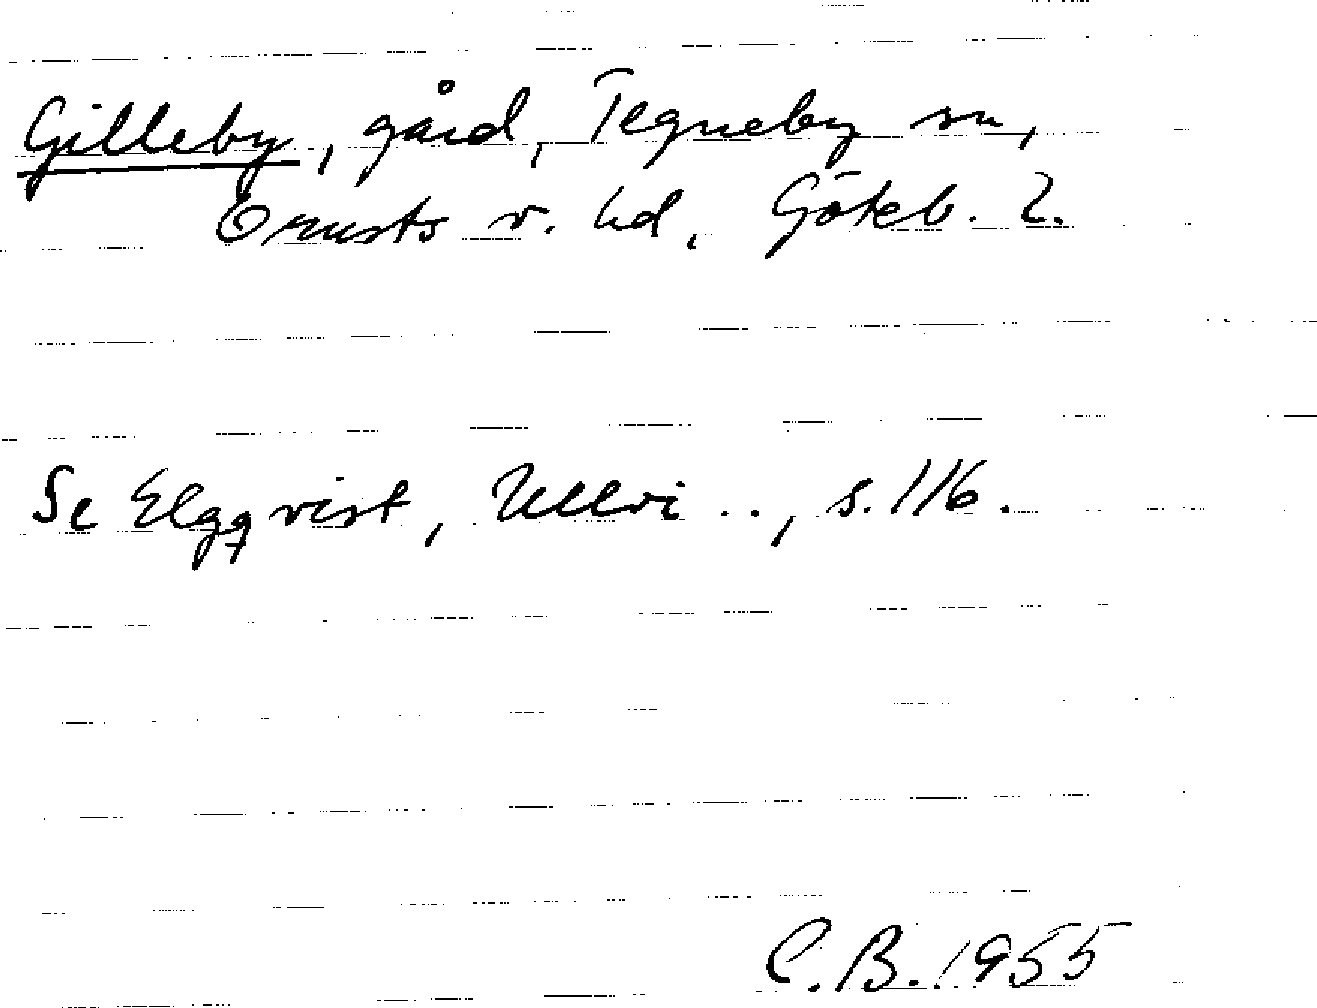 Gilleby, gård, Tegneby sn,
Orusts v. hd, Göteb. l.
Se Elgqvist, Ullvi .., s. 116.
C.B. 1955